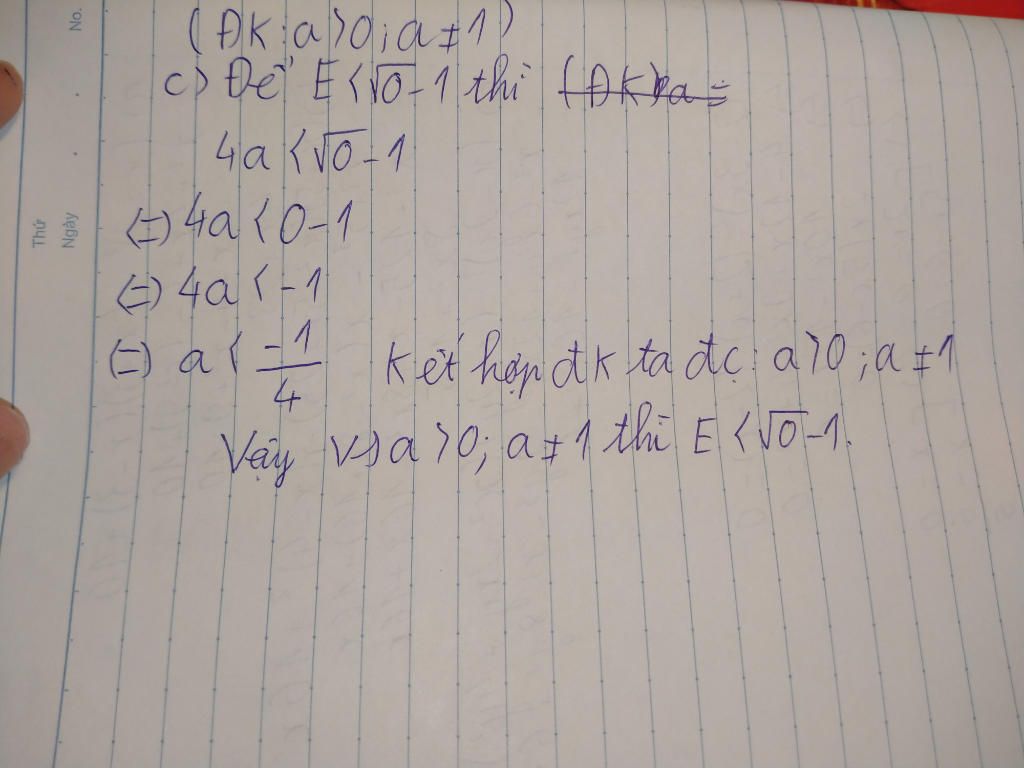 No.
Thứ
Ngày
(ĐK: a > 0; a ≠ 1)
c) Để E < √0 - 1 thì (ĐK) a =
4a < √0 - 1
(=) 4a < 0 - 1
(=) 4a < -1
(=) a < -1/4 Kết hợp đk ta đc: a > 0; a ≠ 1
Vậy vs a > 0; a ≠ 1 thì E < √0 - 1.